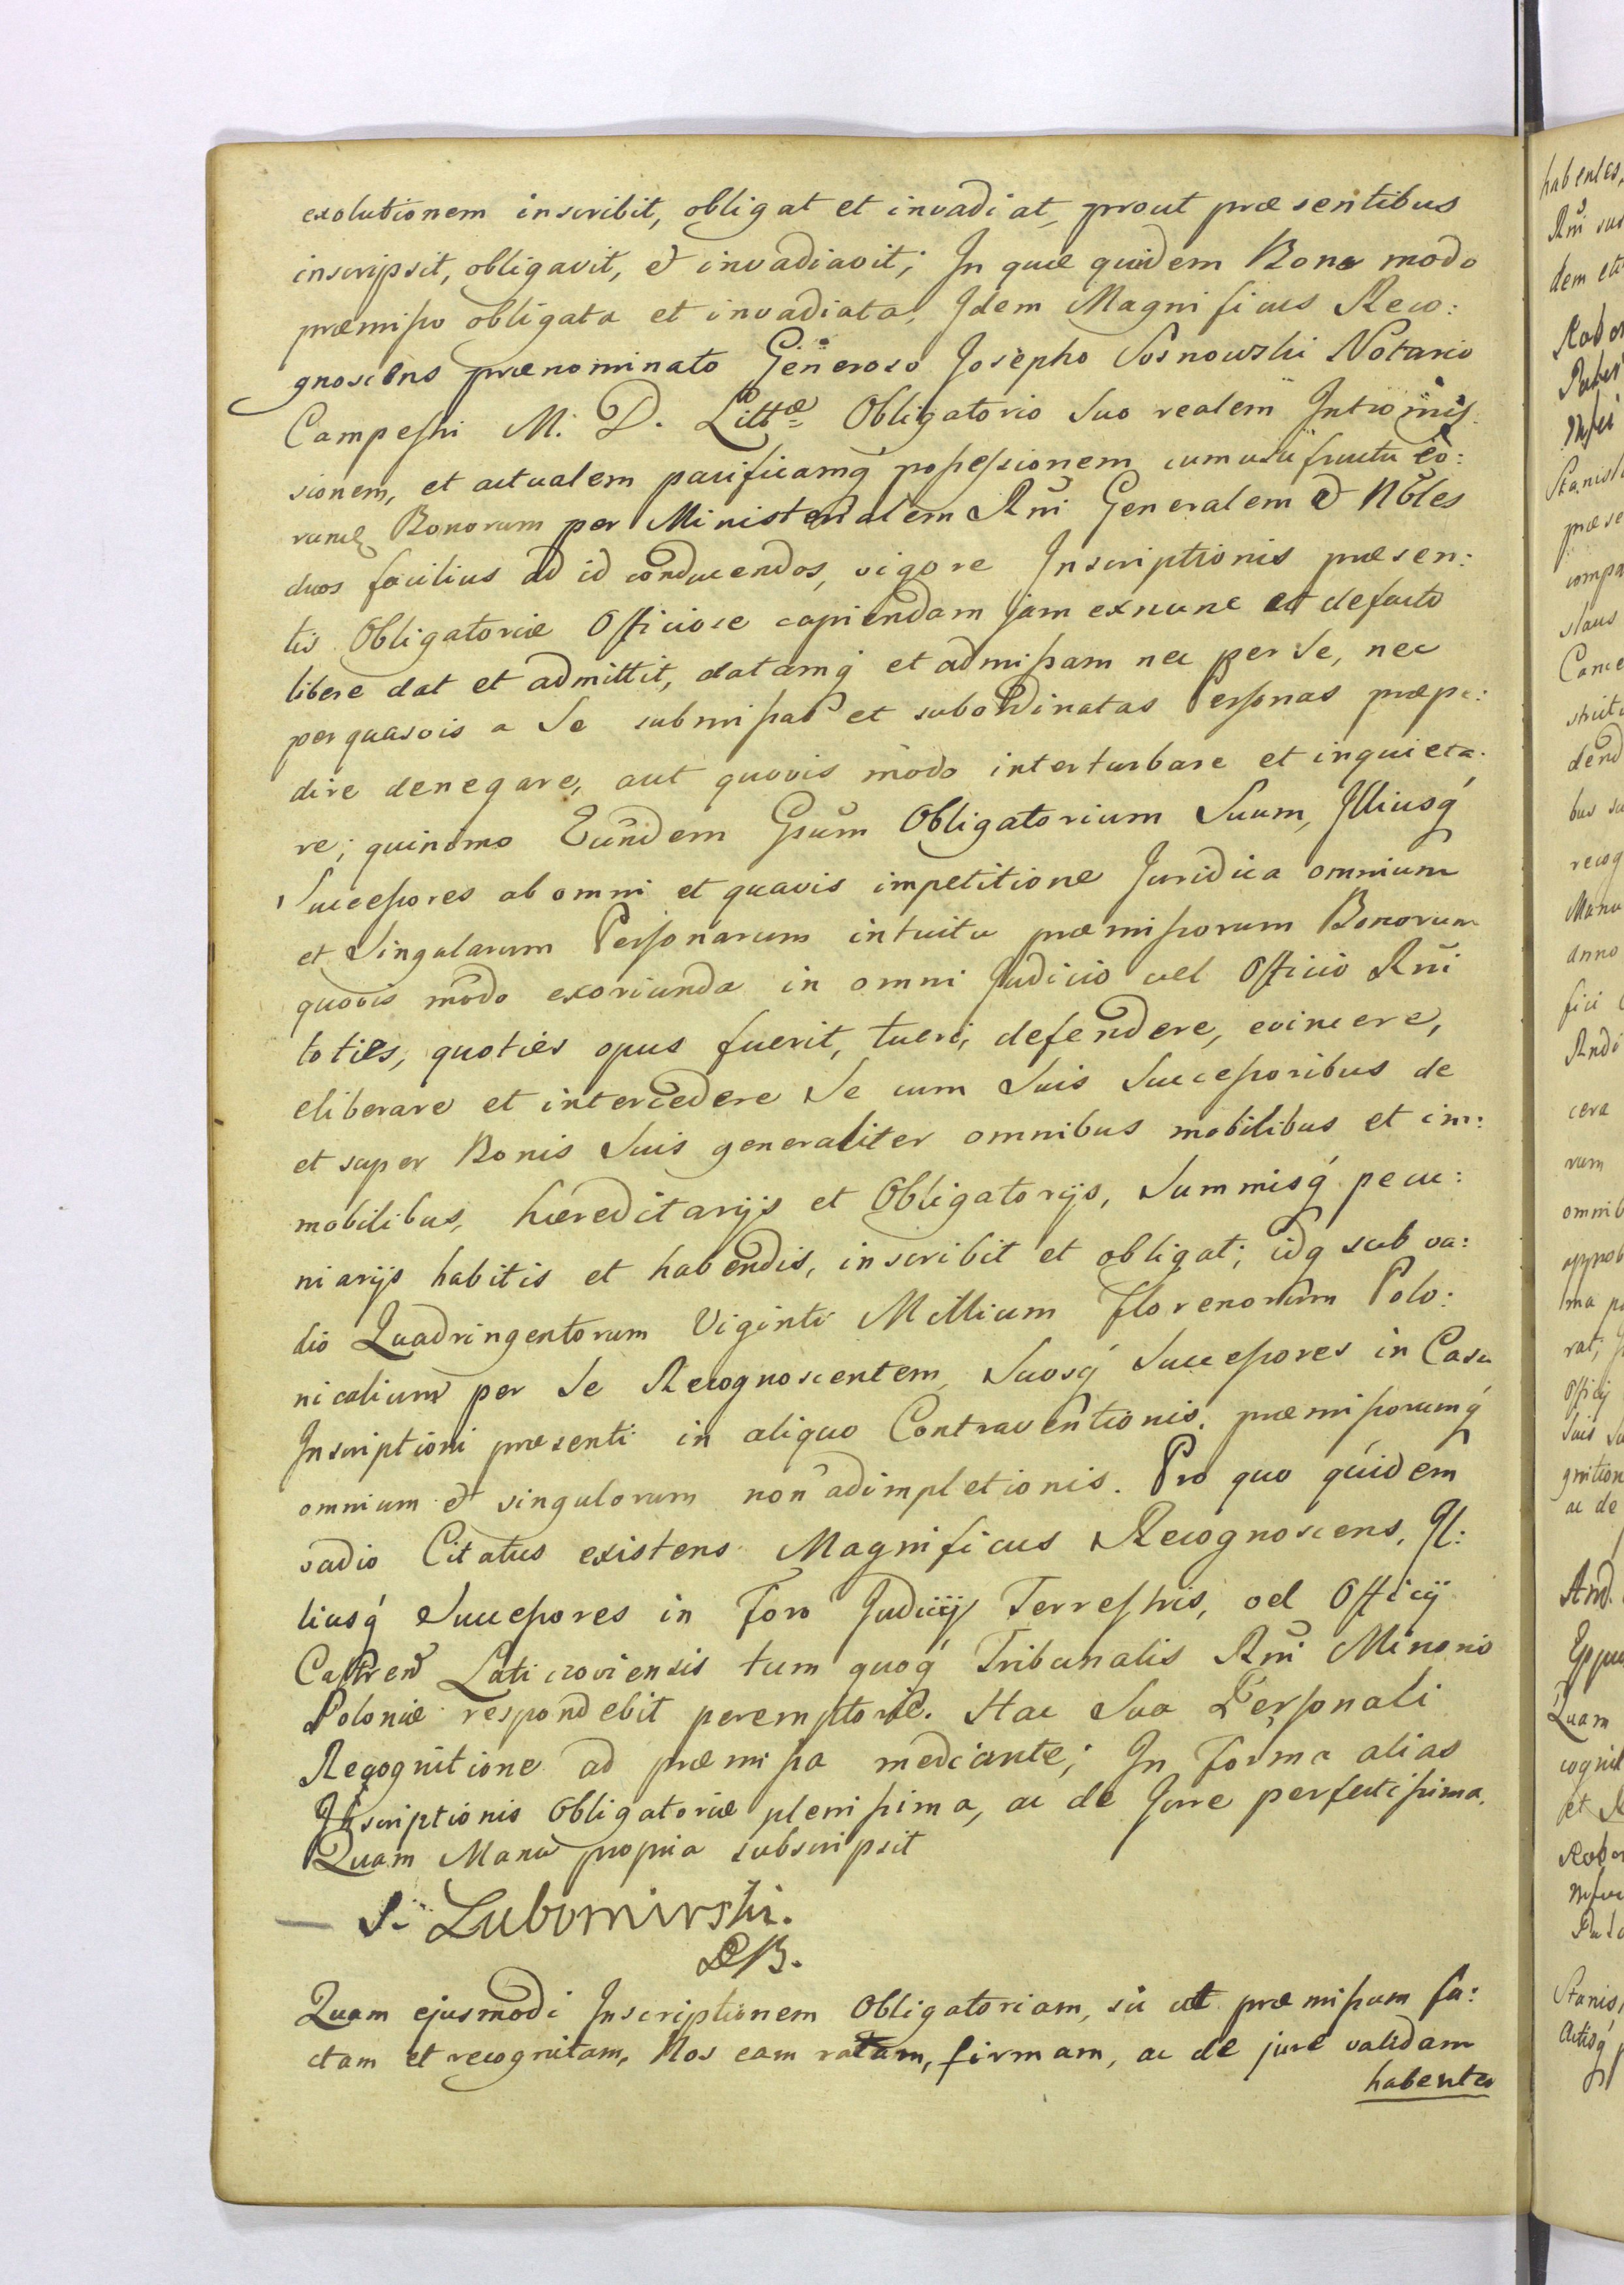 exolutionem inscribit, obligat et invadiat, prout præsentibus
inscripsit, obligavit, et invadiavit; In quæ quidem Bona modo
præmisso obligata et invadiata, Idem Magnificus Reco:
gnoscens prænominato Generoso Josepho Sosnowski Notario
Campestri M. D. Littæ Obligatorio Suo realem Intromis:
sionem, et actualem pacificamq́ possessionem cum usufructu eo:
rundem Bonorum per Ministerialem Rñi Generalem et Nobles
duos facilius ad id conducendos, vigore Inscriptionis præsen:
tis Obligatoriæ Officiose capiendam jam exnunc et defacto
libere dat et admittit, datamq́ et admissam nec per Se, nec
per quasvis a Se submissas et subordinatas Personas præpe:
dire denegare, aut quovis modo interturbare et inquieta:
re; quinimo Eundem Gsum Obligatorium Suum, Illiusq́
Successores ab omni et quavis impetitione Juridica omnium
et Singularum Personarum intuitu præmissorum Bonorum
quovis modo exoriunda in omni Judicio vel Officio Rñi
toties, quoties opus fuerit, tueri, defendere, evincere,
eliberare et intercedere Se cum Suis Successoribus de
et super Bonis Suis generaliter omnibus mobilibus et im:
mobilibus, hæreditarijs et Obligatorijs, Summisq́ pecu:
niarijs habitis et habendis, inscribit et obligat; idq sub va:
dio Quadringentorum Viginti Millium Florenorum Polo:
nicalium per Se Recognoscentem, Suosq́ Successores in Casu
Inscriptioni præsenti in aliquo Contraventionis, præmissorumq́
omnium et singulorum non adimpletionis. Pro quo quidem
vadio Citatus existens Magnificus Recognoscens, Il:
liusq́ Successores in Foro Judicij Terrestris, vel Officij
Castren Laticzoviensis tum quoq́ Tribunalis Rñi Minoris
Poloniæ respondebit peremptorie. Hac Sua Personali
Recognitione ad præmissa mediante; In Forma alias
Inscriptionis Obligatoriæ plenissima, ac de Jure perfectissima.
Quam Manu propria subscripsit
S. Lubomirski.
Quam ejusmodi Inscriptionem Obligatoriam, sic ut præmissum fa:
ctam et recognitam, Nos eam ratam, firmam, ac de jure validam
habentes